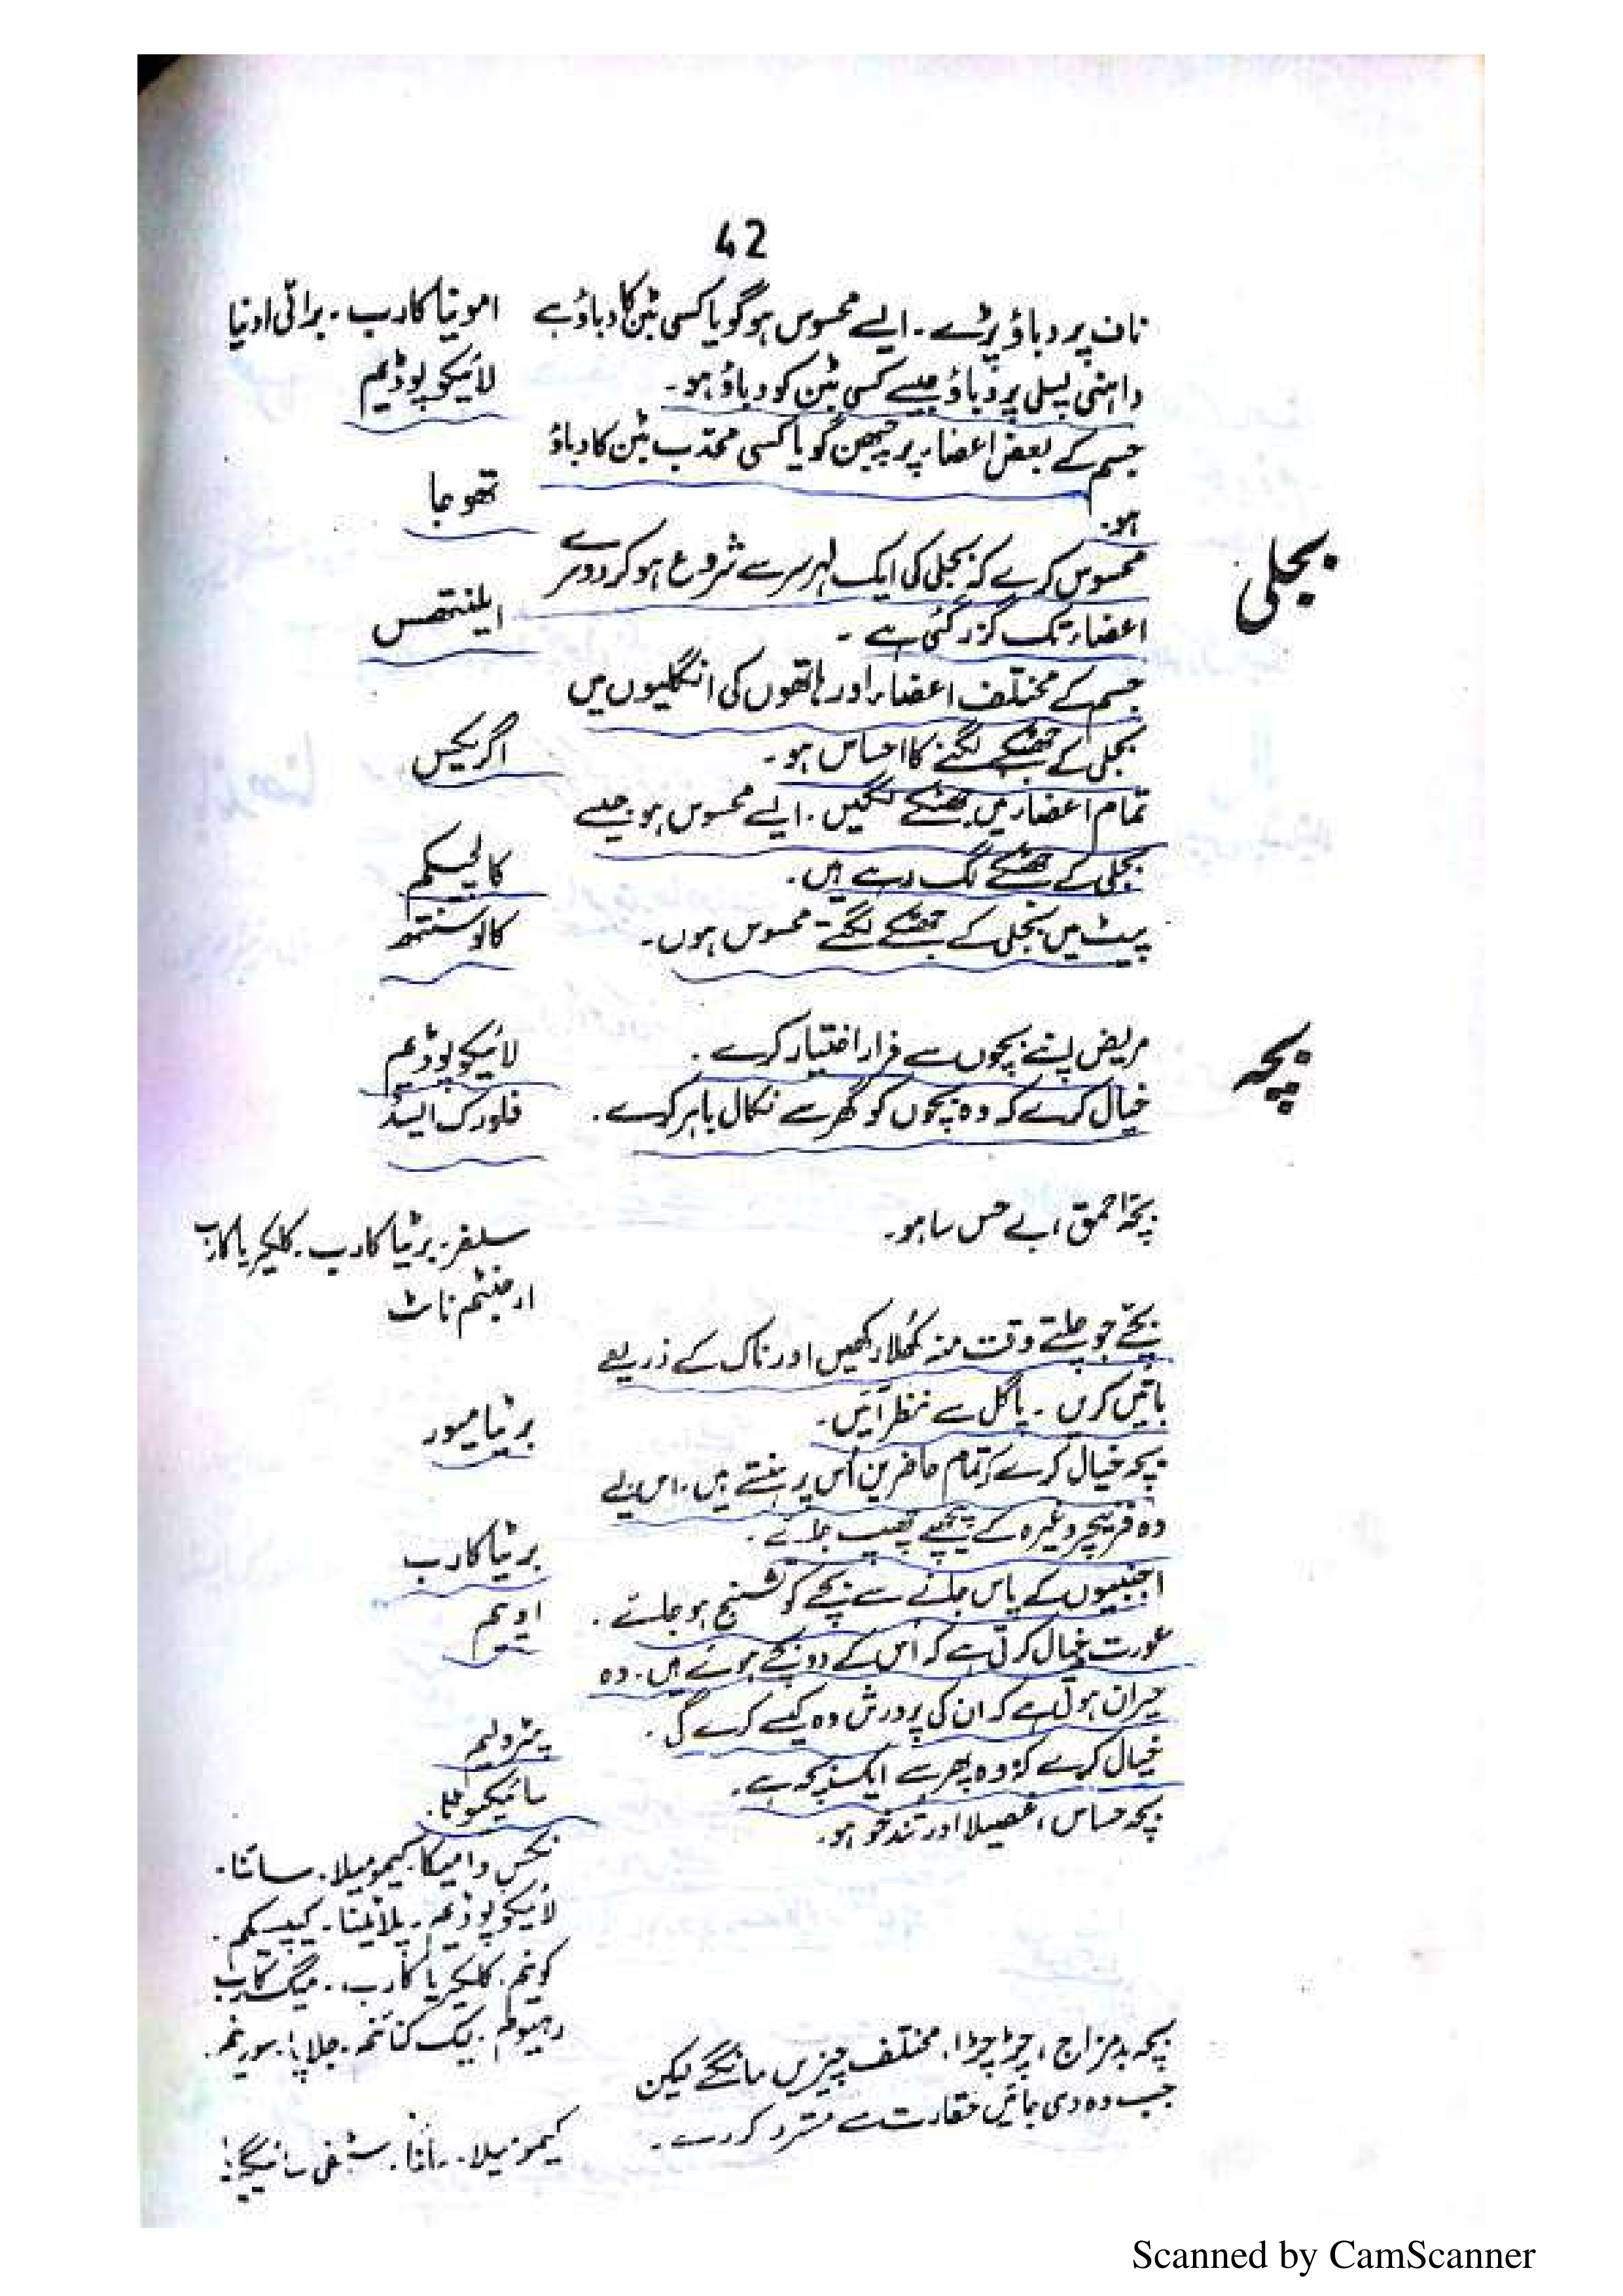 42
ناف پر دباؤ پڑے۔ ایسے محسوس ہو گویا کسی بٹن کا دباؤ ہے
امونیا کارب۔ برائی اونیا
داہنی پسلی پر دباؤ جیسے کسی بٹن کو دباؤ ہو۔
لائیکوپوڈیم
جسم کے بعض اعضاء پر چبھن گویا کسی محدب بٹن کا دباؤ
ہو۔
تھوجا
بجلی
محسوس کرے کہ بجلی کی ایک لہر سر سے شروع ہو کر دوسرے
اعضاء تک گزر گئی ہے۔
ایلنتھس
جسم کے مختلف اعضاء اور ہاتھوں کی انگلیوں میں
بجلی کے جھٹکے لگنے کا احساس ہو۔
اگریکس
تمام اعضاء میں جھٹکے لگیں۔ ایسے محسوس ہو جیسے
بجلی کے جھٹکے لگ رہے ہیں۔
کالچیکم
پیٹ میں بجلی کے جھٹکے لگتے محسوس ہوں۔
کالوسنتھ
بچہ
مریض اپنے بچوں سے فرار اختیار کرے۔
لائیکوپوڈیم
خیال کرے کہ وہ بچوں کو گھر سے نکال باہر کرے۔
فلورک ایسڈ
بچہ احمق، بے حس سا ہو۔
سلفر۔ برٹیا کارب۔ کلکیریا کارب
ارجنٹم نائٹ
بچے جو چلتے وقت منہ کھلا رکھیں اور ناک کے ذریعے
باتیں کریں۔ پاگل سے نظر آئیں۔
برٹیا میور
بچہ خیال کرے کہ تمام حاضرین اس پر ہنستے ہیں۔ اس لیے
وہ فرنیچر وغیرہ کے پیچھے چھپ جائے۔
برٹیا کارب
اجنبیوں کے پاس جانے سے بچے کو تشنج ہو جائے۔
اوپیم
عورت خیال کرتی ہے کہ اس کے دو بچے ہوئے ہیں۔ وہ
حیران ہوتی ہے کہ ان کی پرورش وہ کیسے کرے گی۔
پٹرولیم
خیال کرے کہ وہ پھر سے ایک بچہ ہے۔
سائیکموٹا۔
بچہ حساس، غصیلا اور تندخو ہو۔
نکس وامیکا۔ کیمومیلا۔ سائنا۔
لائیکوپوڈیم۔ پلاٹینا۔ کیپسیکم۔
کونیم۔ کلکیریا کارب۔ میگ کارب
رہیوم۔ لیک کنائنم۔ جلاپا۔ سورنم۔
بچہ بدمزاج، چڑچڑا، مختلف چیزیں مانگے لیکن
جب وہ دی جائیں حقارت سے مسترد کر دے۔
کیمومیلا۔ سائنا۔ سٹفی سائیگیریا
Scanned by CamScanner